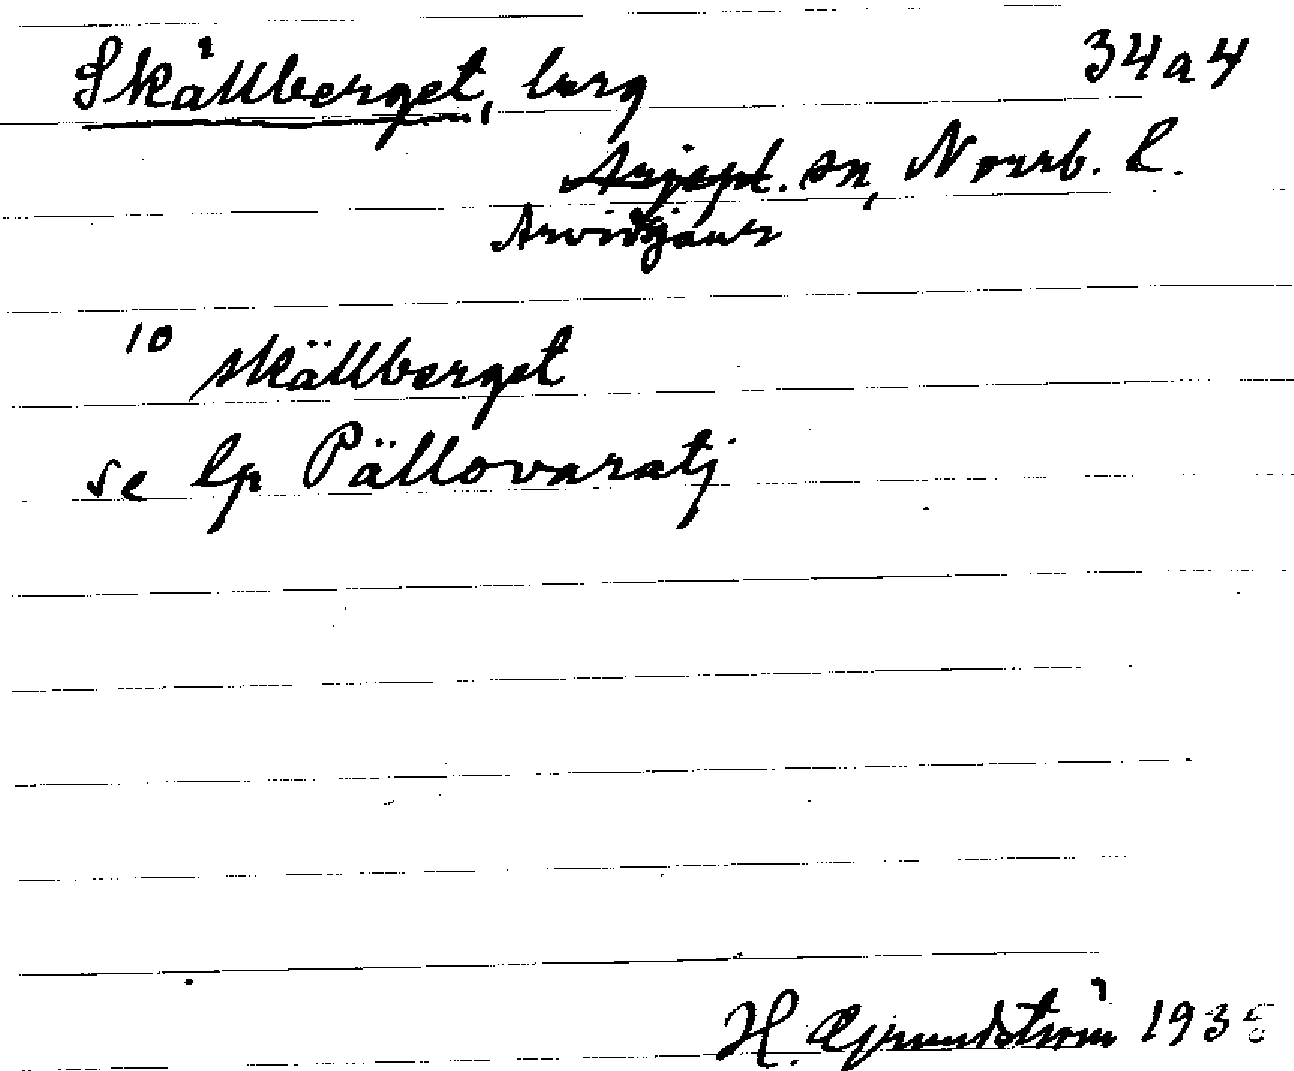 Skällberget, berg 34a4
Arjepl. sn, Norrb. l.
Arvidsjaur
10 skällberget
se lp Pällovaratj
H. Grundström 193